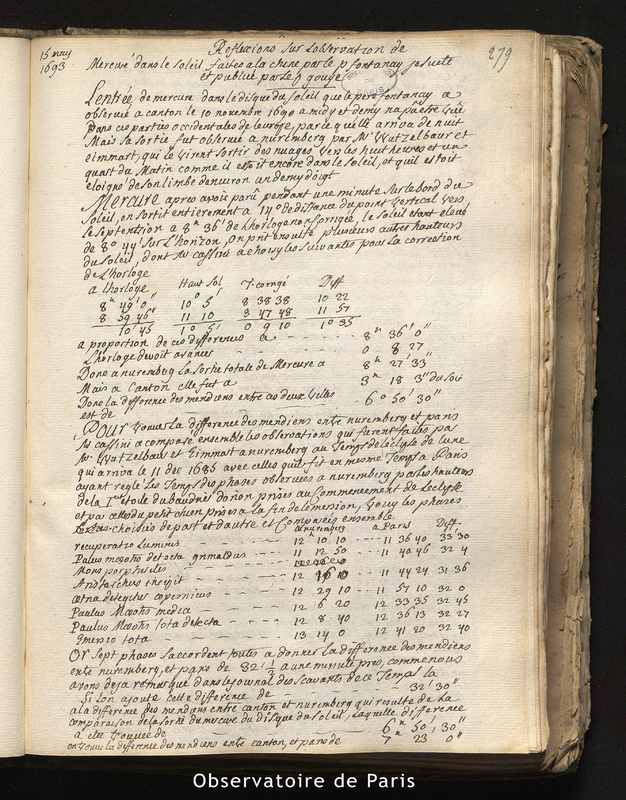 15 may
1693
279
Reflexions Sur Lobservation de
Mercure dans le Soleil faites a la chine par le p fontanay jesuite
et publié par le p gouye
Lentrée de mercure dans le disque du soleil que le pere fontanay a
observé a canton le 10 novembre 1690 a midy et demy na pu etre Veue
dans ces parties occidentales de leurope, parce quelle arriva de nuit
Mais sa sortie fut observée a nuremberg par Mr Wutzelbaur et
eimmart, qui le virent sortir des nuages vers les huit heures et un
quart du Matin comme il estoit encore dans le soleil, et quil estoit
eloigné de son limbe denviron un demy doigt
Mercure apres avoir paru pendant une minute Sur le bord du
Soleil, en sortit entierement a 14° de distance du point vertical vers
le septentrion a 8h 36' de Lhorloge non corrigée, le soleil etant elevé
de 8° 44' sur L'horizon, on prit ensuite plusieurs autres hauteurs
du soleil, dont Mr cassini a choisy les suivantes pour la correction
de L'horloge
a Lhorloge Haut Sol T. corrigé Diff
8h 49' 0" 10° 5' 8 38 38 10 22
8 59 45 11 10 8 47 48 11 57
10' 45 1° 5' 0 9 10 1° 35
a proportion de ces differences a 8h 36' 0"
Lhorloge devoit avancer 0 8 27
Donc a nuremberg La sortie totale de Mercure a 8h 27' 33"
Mais a Canton elle fut a 3h 18 3" du soir
Donc la difference des meridiens entre ces deux villes
est de 6° 50' 30"
Pour trouver La difference des meridiens entre nuremberg et paris
Mr cassini a comparé ensemble les observations qui furent faites par
Mr Wutzelbaur et Eimmart a nuremberg au Temps de leclypse de lune
qui arriva le 11 dec 1685 avec celles quil fit en mesme Temps a Paris
ayant reglé les Temps du phases observées a nuremberg par les hauteurs
de la 1re etoile du baudrier dorion prises au Commencement de Leclypse
et par celles du petit chien prises a la fin de lemersion, Voicy les phases
choisies de part et dautre et Comparées ensemble
a nuremberg a Paris Diff
recuperatio Luminis 12 10 10 11 36 40 33 30
Palus mœotis detecta grimaldus 11 12 50 11 40 46 32 4
Mons porphirites
Aristarchus incipit 12 16 0 11 44 24 31 36
ætna detegitur copernicus 12 29 10 11 57 10 32 0
Paulus Mœotis media 12 6 20 12 33 35 32 45
Paulus Mœotis tota detecta 12 8 40 12 36 13 32 27
Emersio tota 13 14 0 12 41 20 32 40
Or sept phases saccordent toutes a donner la difference des meridiens
entre nuremberg, et paris de 32' 1/2 a une minute pres, comme nous
avons deja remarqué dans le journal des scavants de ce Temps la
Si lon ajoute cette difference de 32' 30"
a la difference des meridiens entre canton et nuremberg qui resulte de La
comparaison de la sortie du mercure du disque du soleil, laquelle difference
a eté trouvée de 6h 50' 30"
on trouve la difference des meridiens entre canton, et paris de 7h 23 0"
Observatoire de Paris